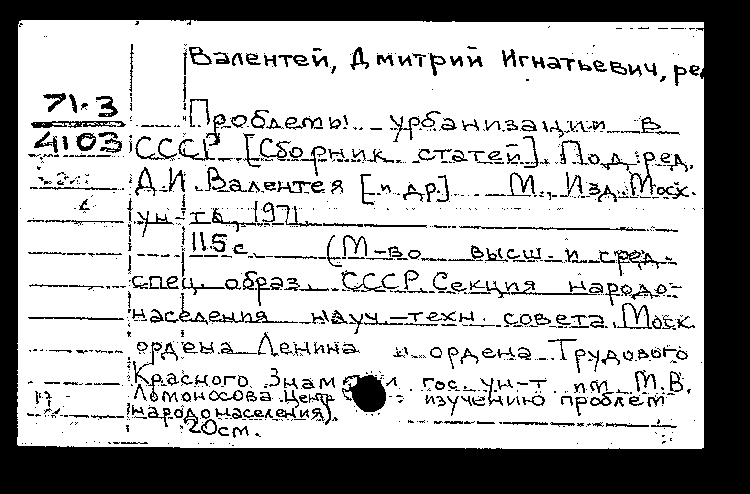 Валентей, Дмитрий Игнатьевич, ред
71.3
4103
Проблемы урбанизации в
СССР [Сборник статей]. Под ред.
Д.И. Валентея [и др.] М., Изд. Моск.
ун-та, 1971.
115 с. (М-во высш. и сред.
спец. образ. СССР. Секция народо-
населения науч.-техн. совета. Моск.
ордена Ленина и ордена Трудового
Красного Знамени гос. ун-т им М.В.
Ломоносова. Центр изучению проблем
народонаселения).
20см.